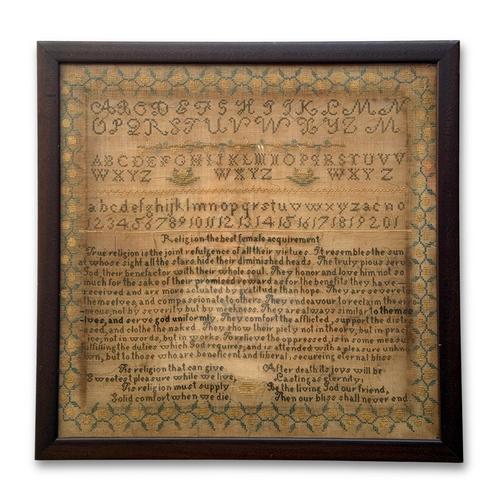 ABCDEFGHIJKLMN
OPQRSTUVWXYZM
ABCDEFGHIJKLMNOPQRSTUVV
WXYZ WXYZ WXYZ
abcdefghijklmnopqrstuvwxyzacno
1234567891011121314151617181920 1
Religion the best female acquirement
True religion is the joint refulgence of all their virtues. It resembles the sun
at whose sight all the stars hide their diminished heads. The truly pious serve
God, their benefactor with their whole soul. They honor and love him not so
much for the sake of their promised reward as for the benefits they have
received and are more actuated by gratitude than hope. They are severe to
themselves, and compassionate to others. They endeavour to reclaim the er
oneous, not by severity but by meekness. They are always similar to themse
elves, and serve god uniformly. They comfort the afflicted, support the distre
ssed, and clothe the naked. They show their piety not in theory, but in prac
tice; not in words, but in works. To relieve the oppressed, is in some measure
fulfilling the duties which God requires; and is attended with a pleasure unkn
own, but to those who are beneficent and liberal; secureing eternal bliss
Tis religion that can give
Sweetest pleasure while we live,
Tis religion must supply
Solid comfort when we die.
After death its joys will be
Lasting as eternity;
Be the living God our friend,
Then our bliss shall never end